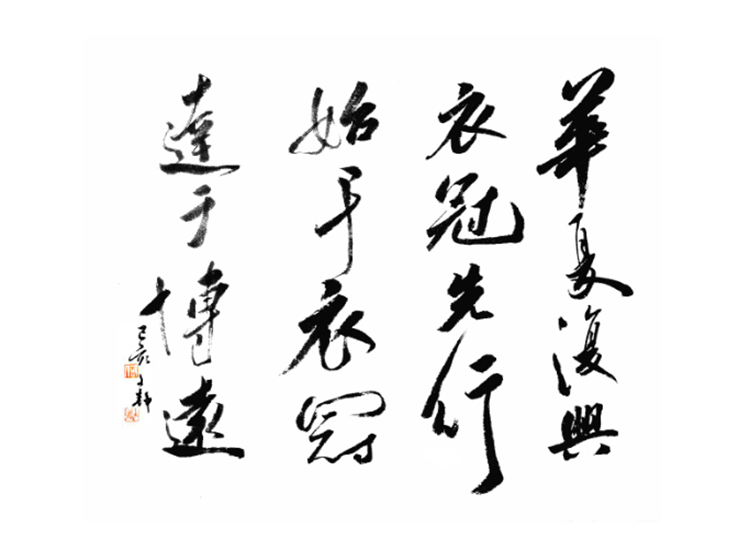 華夏復興
衣冠先行
始于衣冠
達于博遠
己亥